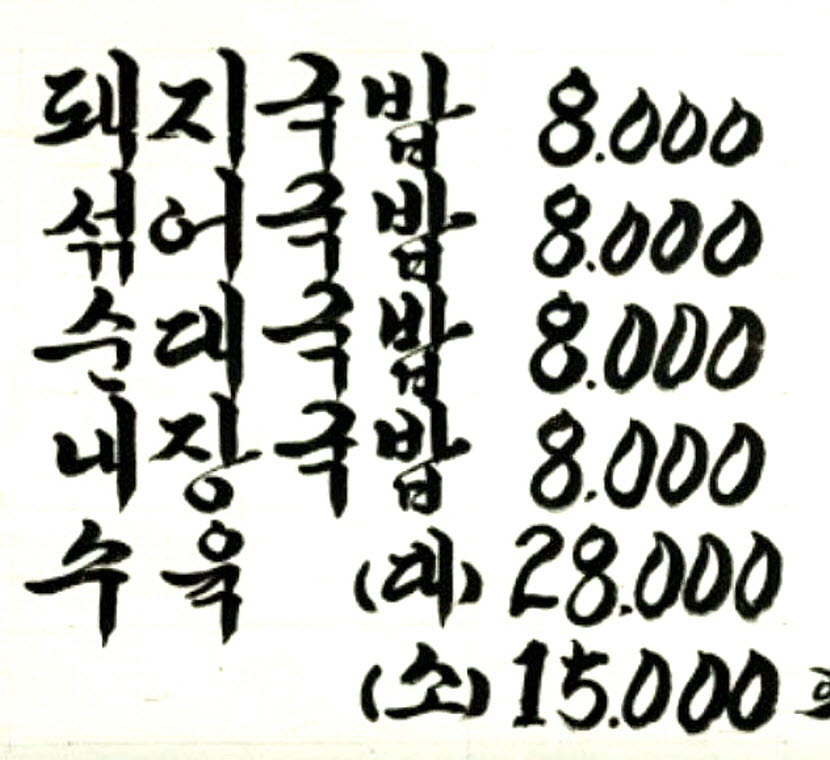 돼지국밥 8.000
섞어국밥 8.000
순대국밥 8.000
내장국밥 8.000
수육 (대) 28.000
(소) 15.000